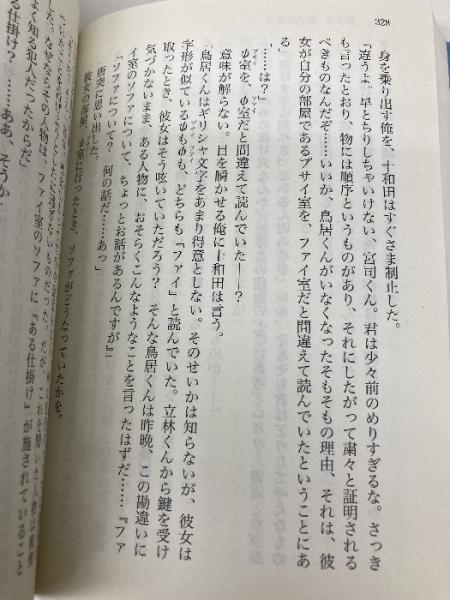 328
身を乗り出す俺を、十和田はすぐさま制止した。
「違うよ。早とちりしちゃいけない、宮司くん。君は少々前のめりすぎるな。さっき
も言ったとおり、物には順序というものがあり、それにしたがって粛々と証明される
べきものなんだぞ……いいか、鳥居くんがいなくなったそもそもの理由、それは、彼
女が自分の部屋であるプサイ室を、ファイ室だと間違えて読んでいたということにあ
る」
「……は？」
ψ室を、φ室だと間違えて読んでいた――？
意味が解らない。目を瞬かせる俺に十和田は言う。
「鳥居くんはギリシャ文字をあまり得意としない。そのせいかは知らないが、彼女は
字形が似ているφもψも、どちらも『ファイ』と読んでいた。立林くんから鍵を受け
取ったとき、彼女はそう呟いていただろう？　そんな鳥居くんは昨晩、この勘違いに
気づかないまま、ある人物に、おそらくこんなようなことを言ったはずだ……『ファ
イ室のソファについて、ちょっとお話があるんですが』」
「ソファについて？　何の話だ……あっ」
唐突に思い出した。
彼女の部屋、ψ室に行ったとき、ソファがどうなっていたかを。
した。なぜならその人物は、ファイ室のソファに『ある仕掛け』が施されていること
よく知る犯人だったからだ」
る仕掛け？　……ああ、そうか